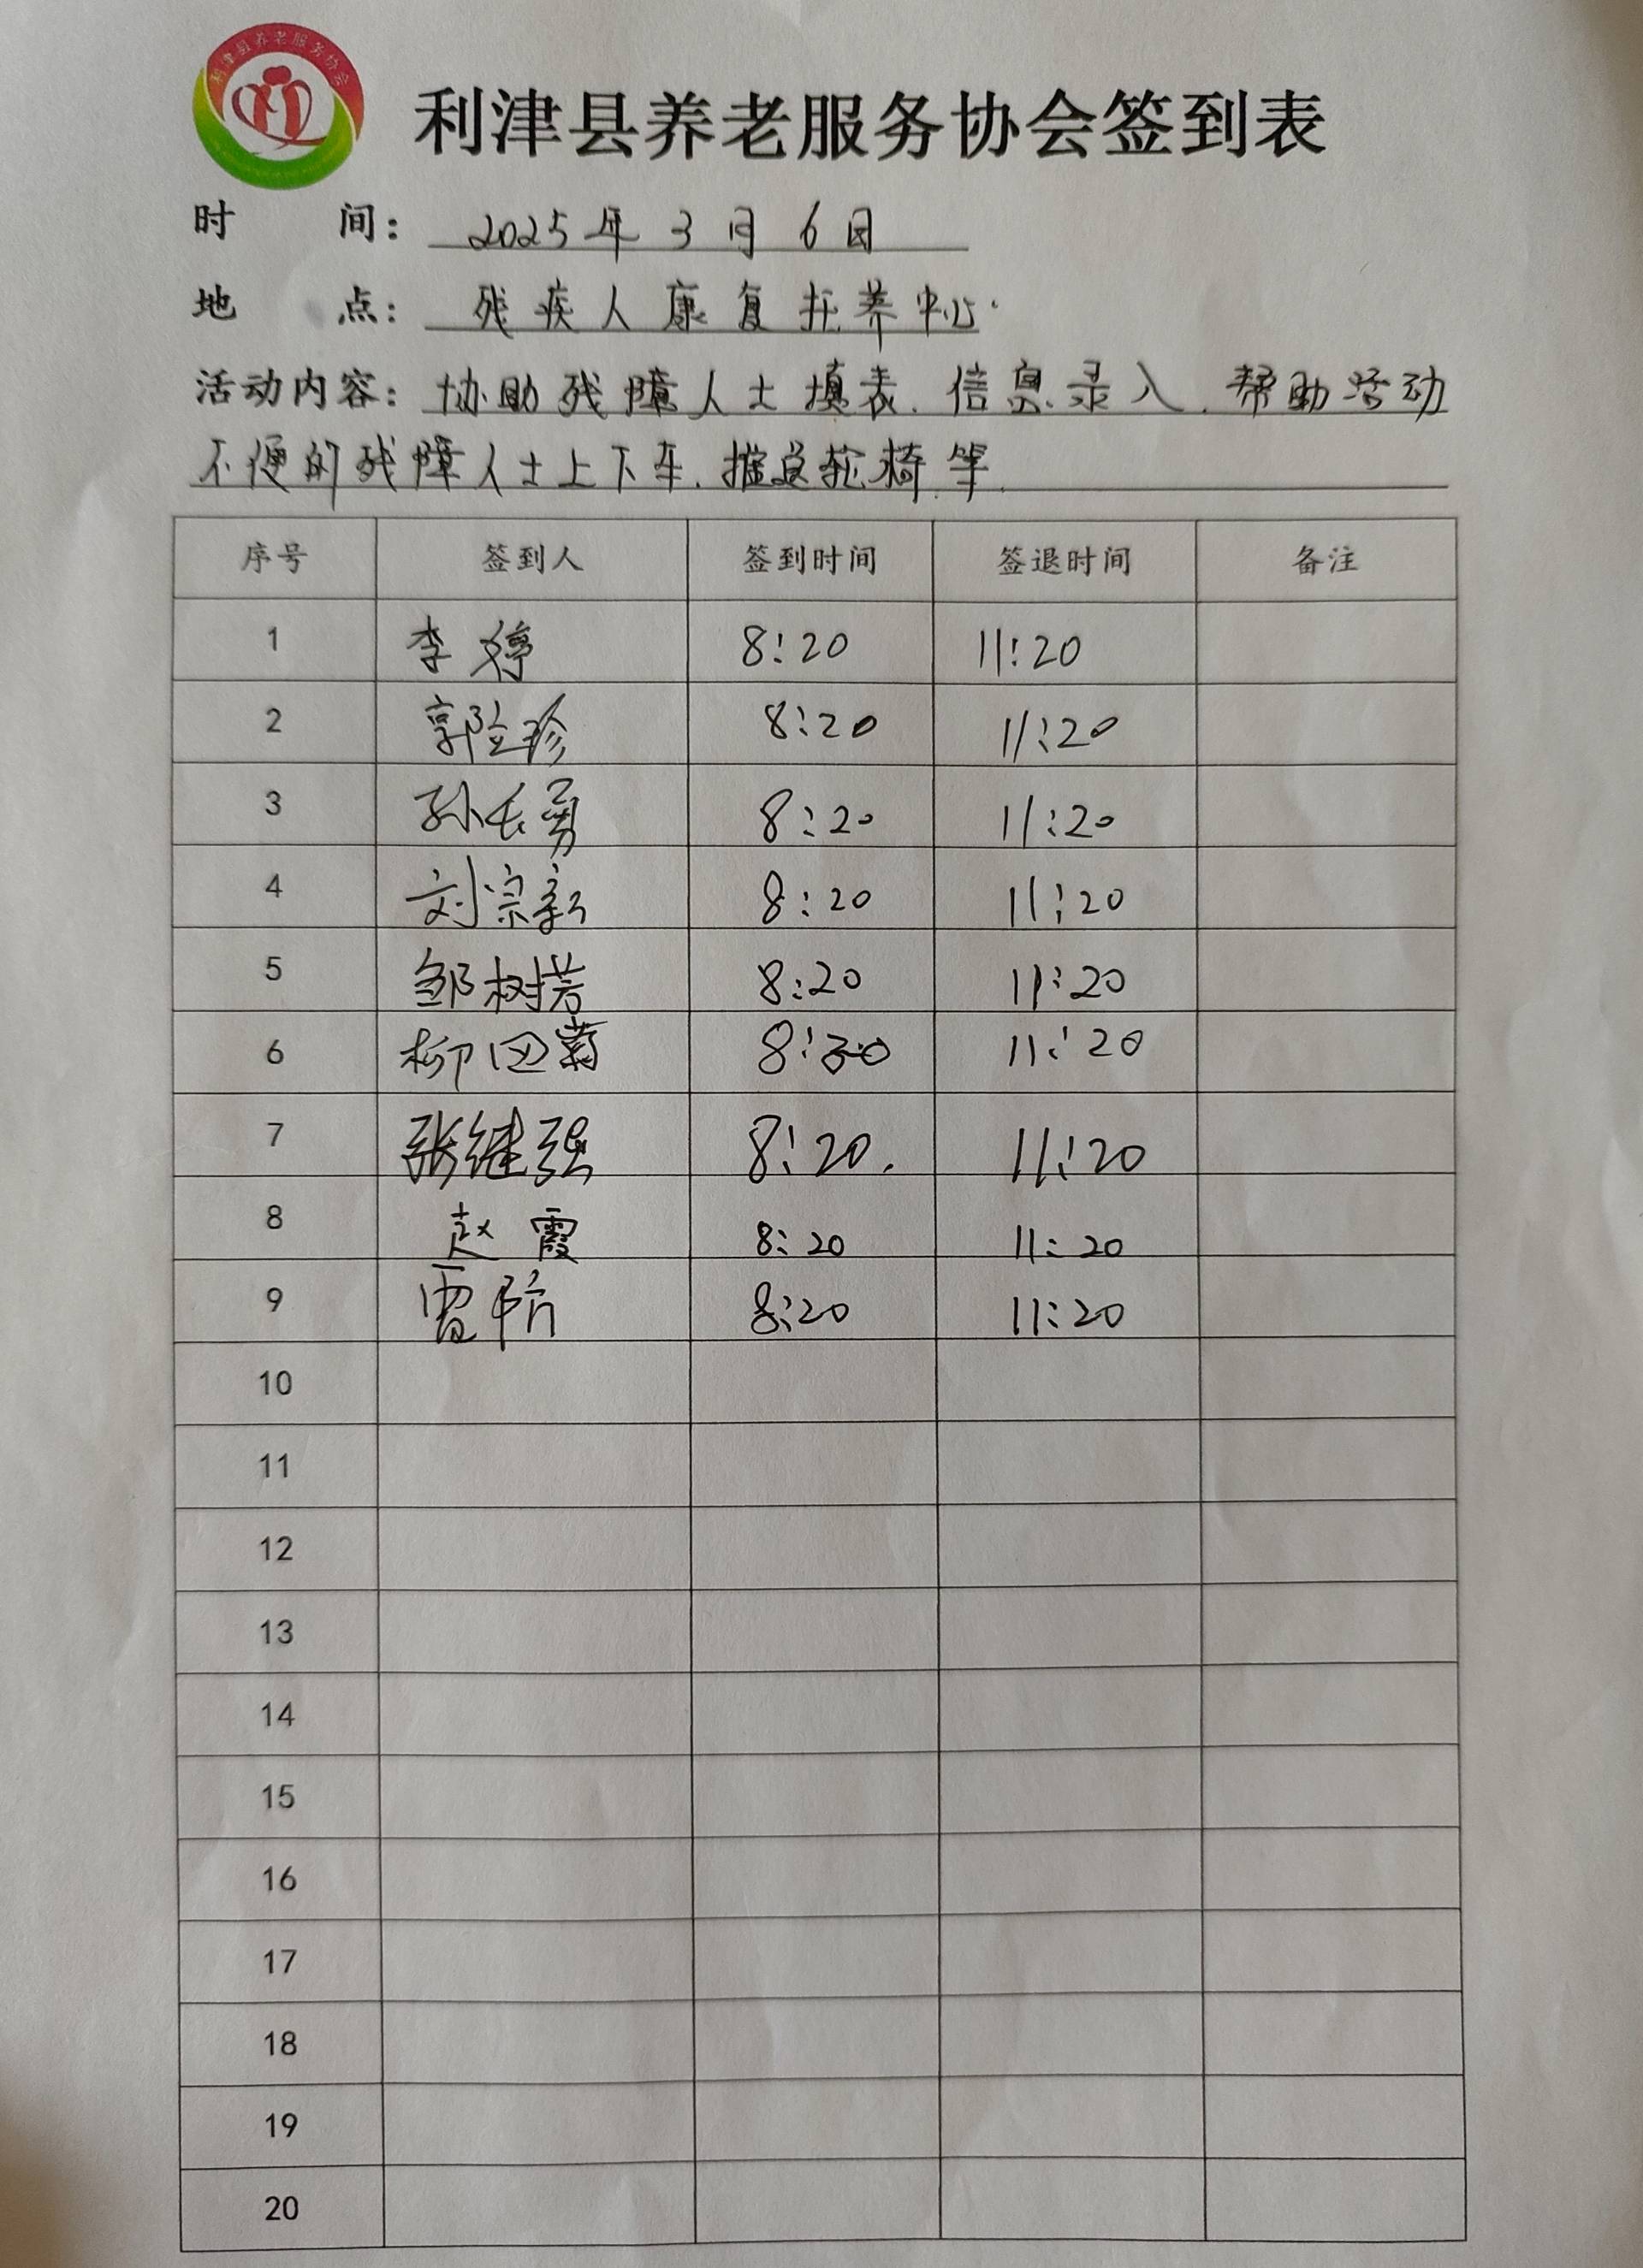 利津县养老服务协会
利津县养老服务协会签到表
时 间: 2025年3月6日
地 点: 残疾人康复托养中心
活动内容: 协助残障人士填表、信息录入、帮助活动
不便的残障人士上下车、推送轮椅等
序号 签到人 签到时间 签退时间 备注
1 李婷 8:20 11:20
2 郭险珍 8:20 11:20
3 孙长勇 8:20 11:20
4 刘宗新 8:20 11:20
5 邹树芳 8:20 11:20
6 柳田菊 11:20
7 张继强 8:20. 11:20
8 赵霞 8:20 11:20
9 8:20 11:20
10
11
12
13
14
15
16
17
18
19
20